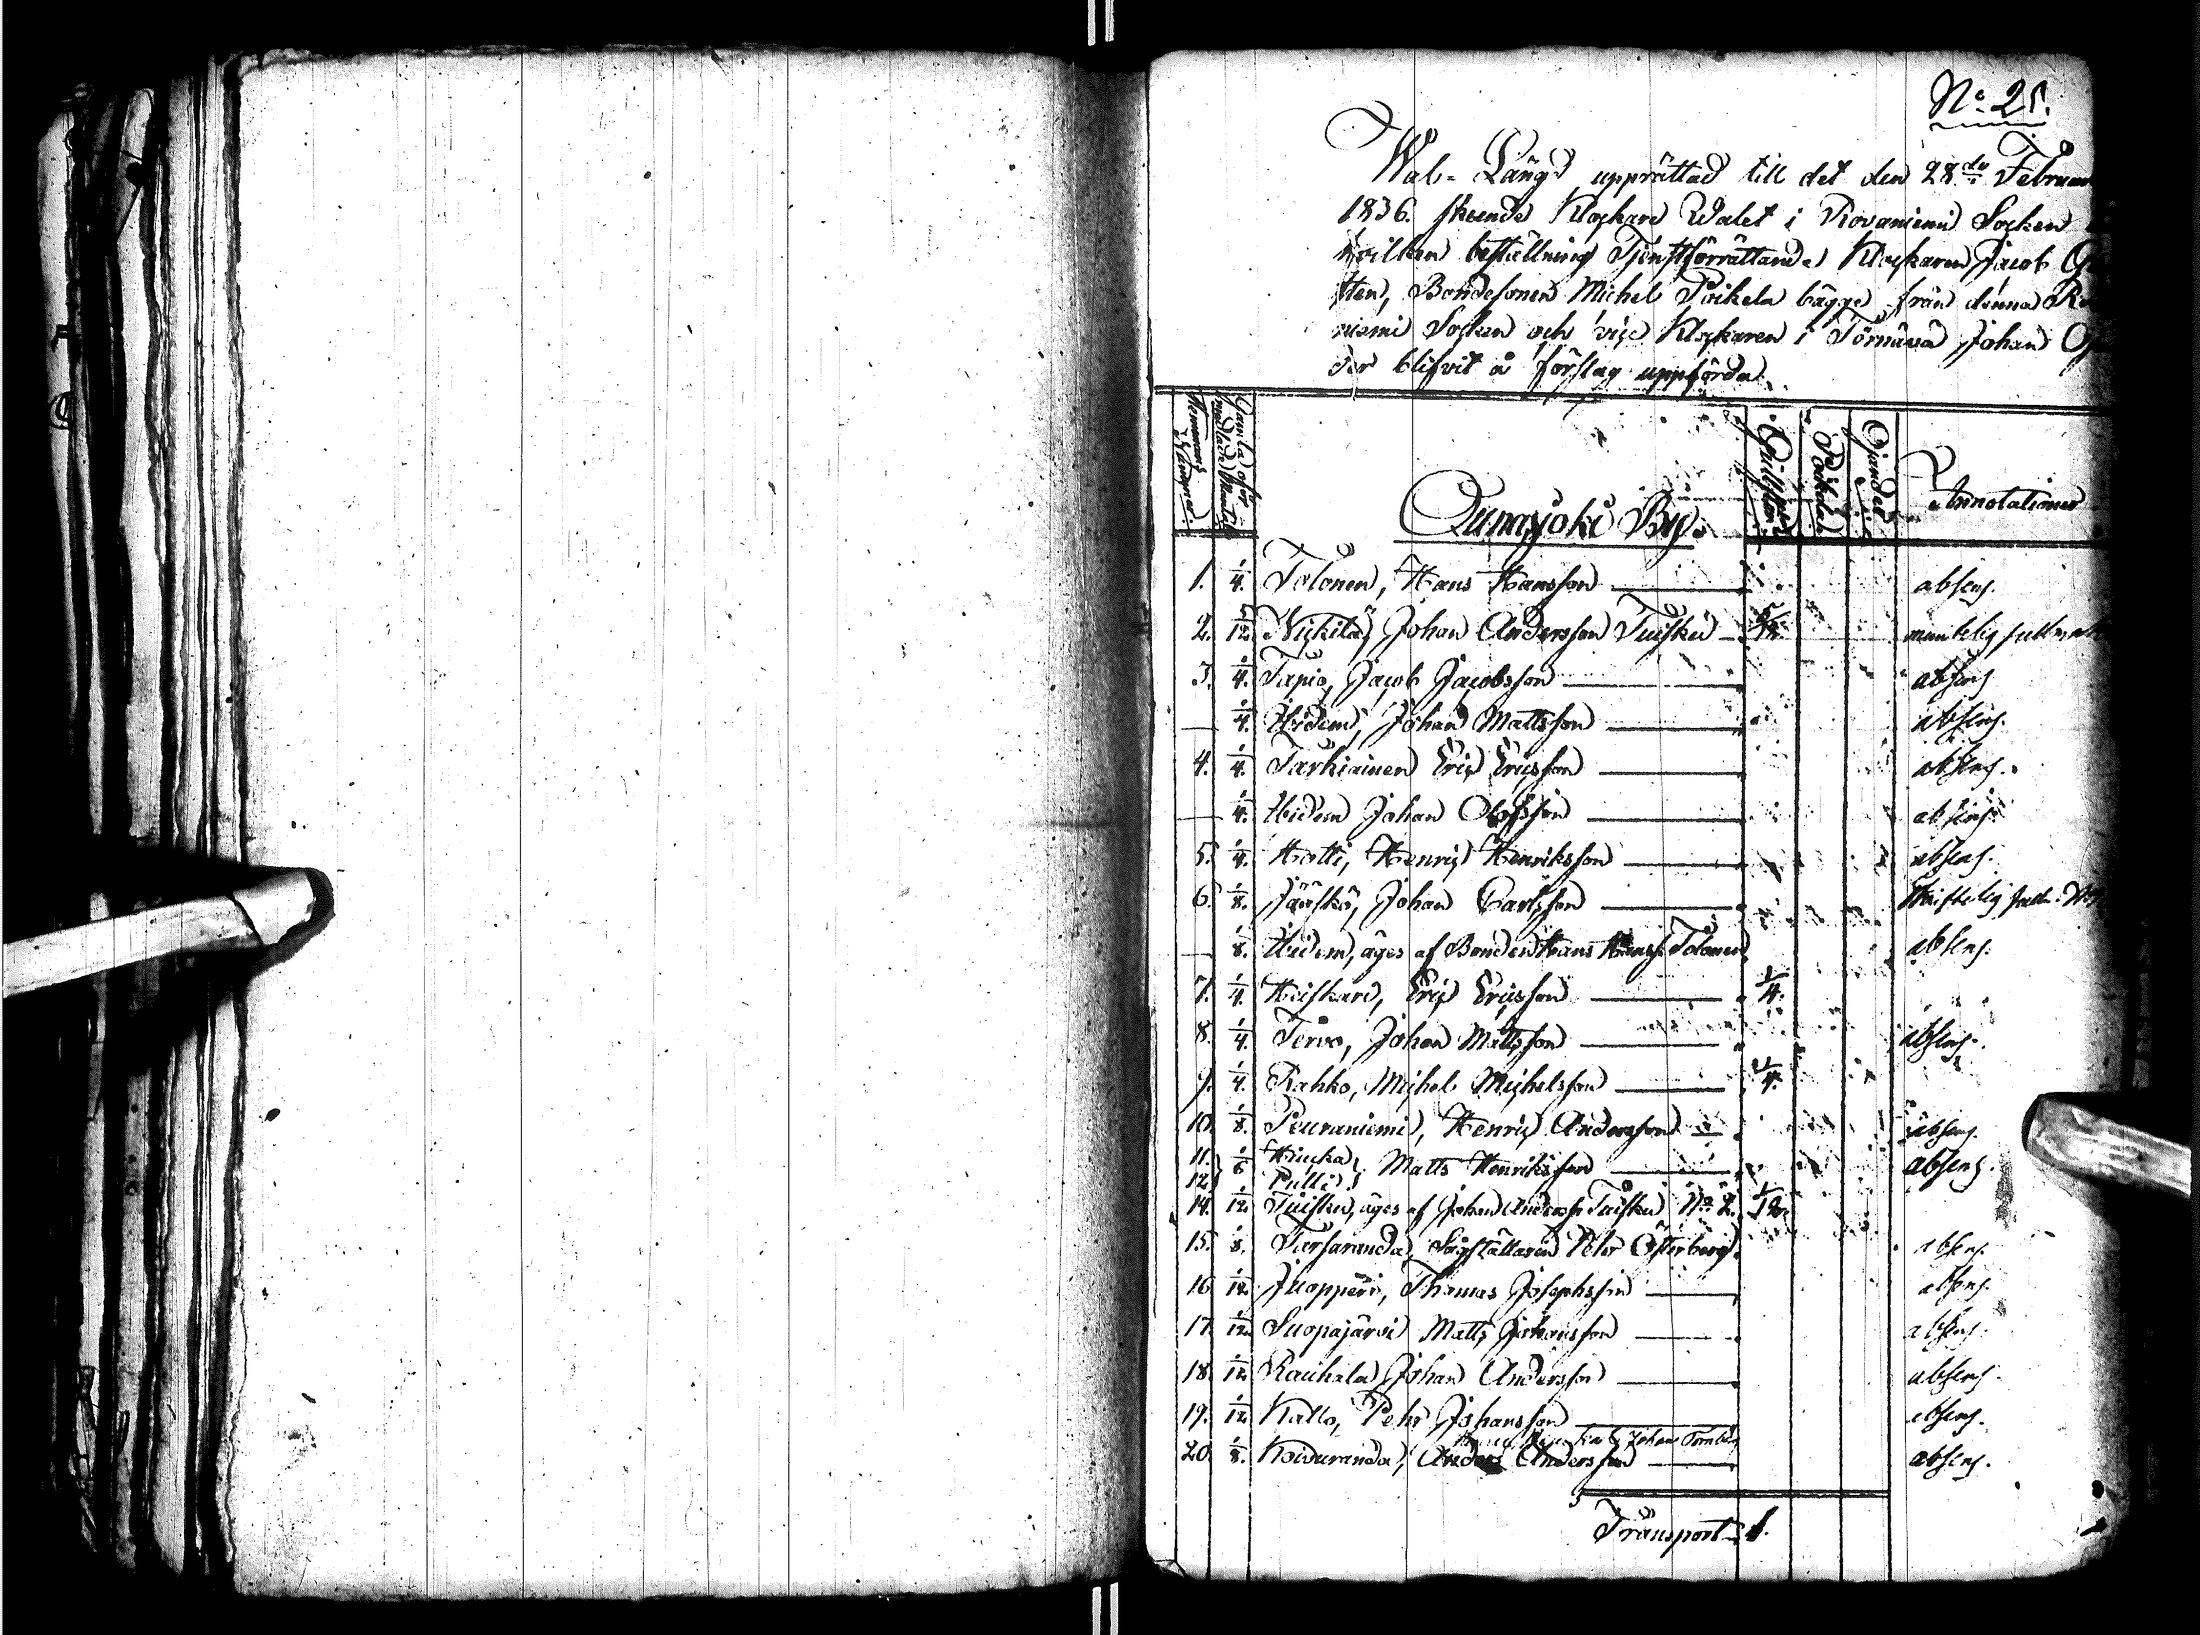 No 25.
Wal-Längd upprättad till det den 28de Februarii
1836. skeende Klockare Walet i Rovaniemi Socken
hvilken beställning Tjenstförrättande Klockaren Jacob
sten, Bondesonen Michel Poikela bägge från denna
niemi Socken och vice Klockaren i Törnävä Johan
der blifvit å förslag uppförda.
Hemmanets
Gamla oför-
Poikela
Ojander
Annotationer
Ounasjoki By.
1. 1/4. Tolonen, Hans Hansson absens.
2. 5/12 Nickilä, Johan Andersson Tuisku 5/12. muntelig fullmakt
3. 1/4. Tapio, Jacob Jacobsson absens
— 1/4. Ibidem, Johan Mattsson absens.
4. 1/4. Tarkiainen Eric Ericsson absens.
— 1/4. Ibidem Johan Olofsson absens.
5. 1/4. Hotti, Henric Henriksson absens.
6. 1/8. Jääskö, Johan Carlsson Skriftelig full.
— 1/8. Ibidem, äges af Bonden Hans Hanss. Tolonen absens.
7. 1/4. Heiskari, Eric Ericsson 1/4.
8. 1/4. Tervo, Johan Mattsson absens.
9. 1/4. Rahko, Michel Michelsson 1/4.
10. 1/8. Peuraniemi, Henric Andersson absens.
11. 1/6 Hiucka
12. Pulli Matts Henriksson absens.
14. 1/12 Tuisku, äges af Johan Anderss. Tuisku No 2. 1/12.
15. 1/8. Tarsaranda, Sågställaren Pehr Österberg absens.
16 1/12. Juopperi, Thomas Josephsson absens.
17. 1/12. Suopajärvi Matts Johansson absens.
18. 1/12 Rauhala Johan Andersson absens.
19. 1/12 Kallo, Pehr Johansson absens.
Johan
20. 1/8. Koiduranda, Anders Andersson absens.
Transport 1.